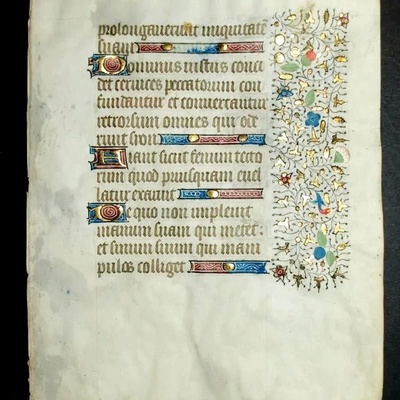 prolongaverūt iniquitatē
suam
Dominus iustus conci
det cervices peccatorum con
fundantur et convertantur
retrorsum omnes qui ode
runt syon
Fiant sicut fenum tecto
rum quod priusquam evel
latur exaruit
De quo non implevit
manum suam qui metet:
et sinum suum qui mani
pulos colliget